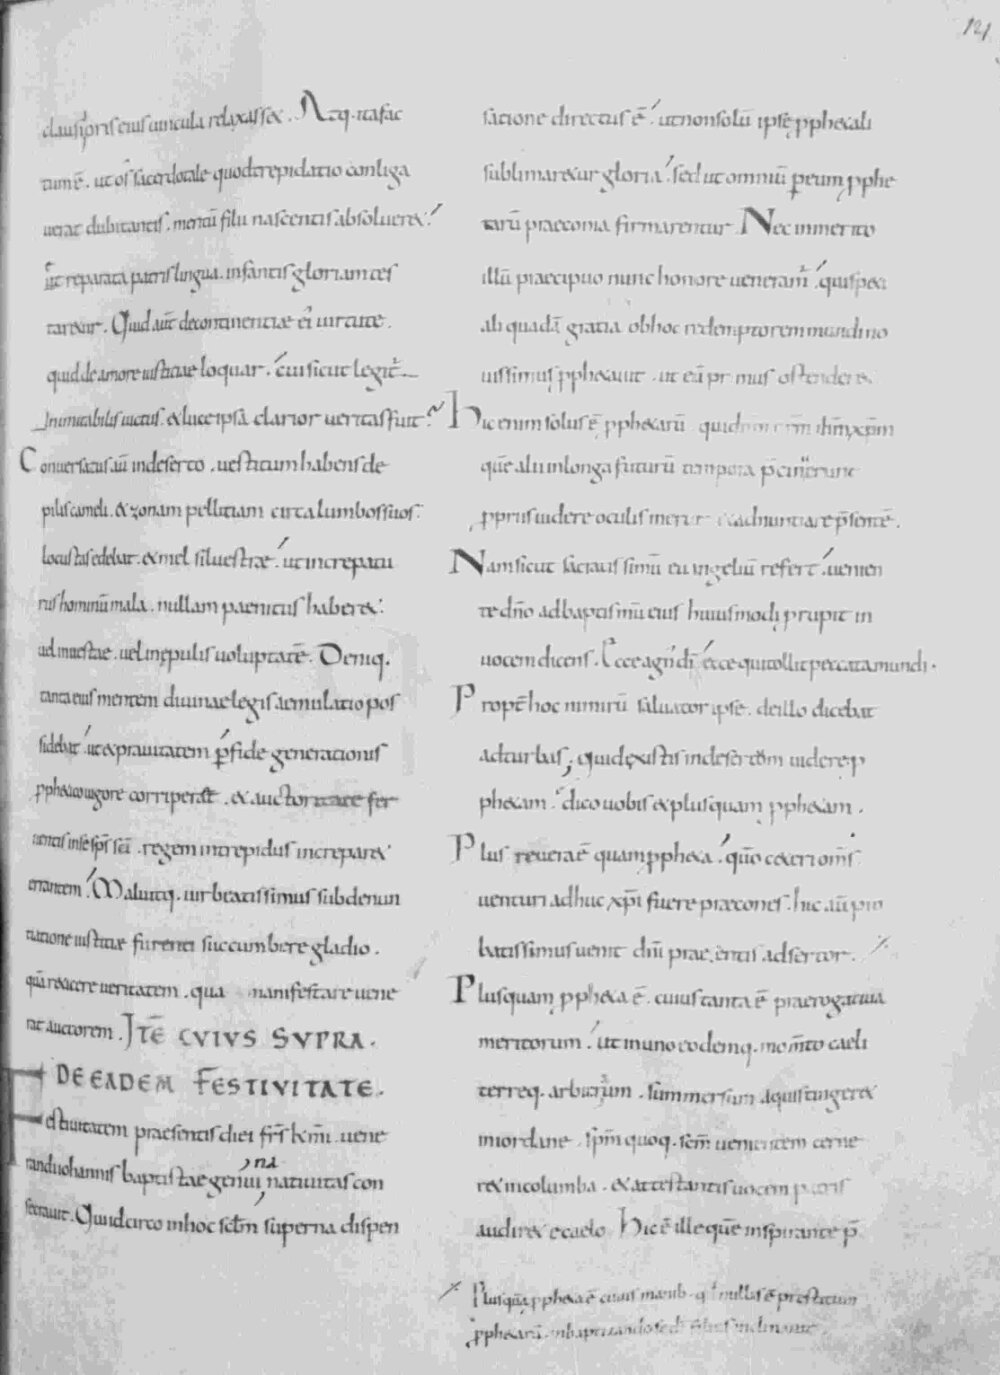 121
clausi oris eius uincula relaxasset. Atq. ita fac
tum ē. ut os sacerdotale quod trepidatio conliga
uerat dubitantis. meritū filii nascentis absolueret.
ut reparata patris lingua. infantis gloriam tes
taretur. Quid aut̄ de continentiae ei uirtute.
quid de amore iustitiae loquar. cui sicut legit̄
Inimitabilis uictus. & luce ipsa clarior ueritas fuit.
Conuersatus aū in deserto. uestitum habens de
pilis cameli. & zonam pelliciam circa lumbos suos.
locustas edebat. & mel siluestrae. ut increpatu
rus hominū mala. nullam paenitus haberet
uel in uestae. uel in epulis uoluptatē. Deniq.
tanta eius mentem diuinae legis aemulatio pos
sidebat. ut & prauitatem p̄fide generationis
pphetico uigore corriperet. & auctoritate fer
uentis in se sp̄s sc̄i. regem intrepidus increparet
errantem. Maluitq. uir beatissimus sub denun
tiatione iustitiae furenti succumbere gladio.
quā reticere ueritatem. qua manifestare uene
rat auctorem. ITĒ CVIVS SVPRA.
DE EADEM FESTIVITATE.
Festiuitatem praesentis diei fr̄s k̄mi. uene
randi iohannis baptistae genui, na natiuitas con
secrauit. Qui idcirco in hoc sc̄lm superna dispen
satione directus ē. ut non solū ipse pphetali
sublimaretur gloria. sed ut omniū per eum pphe
tarū praeconia firmarentur. Nec inmerito
illū praecipuo nunc honore ueneram̄. qui speci
ali quadā gratia ob hoc redemptorem mundi no
uissimus pphetauit. ut eū primus ostenderet.
Hic enim solus ē pphetarū qui dn̄m ih̄m xp̄m
quē alii in longa futurū tempora p̄cinuerunt
ppriis uidere oculis meruit & adnuntiare p̄sentē.
Nam sicut sacratissimū euangeliū refert. uenien
te dn̄o ad baptismū eius huiusmodi prupit in
uocem dicens. Ecce agn̄ dī ecce qui tollit peccata mundi.
Propt̄ hoc nimirū saluator ipse. de illo dicebat
ad turbas; quid existis in desertom uidere p
phetam. dico uobis & plus quam pphetam.
Plus reuera ē quam ppheta. quō ceteri omn̄s
uenturi adhuc xp̄i fuere praecones. hic aū pro
batissimus uenit dn̄i praesentis adsertor.
Plus quam ppheta ē. cuius tanta ē praerogatiua
meritorum. ut in uno eodemq. mom̄to caeli
terreq. arbitrum. summersum aquis tingeret
in iordane. sp̄m quoq. sc̄m uenientem cerne
ret in columba. & attestantis uocem patris
audiret e caelo. Hic ē ille quē inspirante p̄
Plus quā ppheta ē cuius manib. qđ nulli ē prestitum
pphetarū. in baptizando se dī filius inclinauit